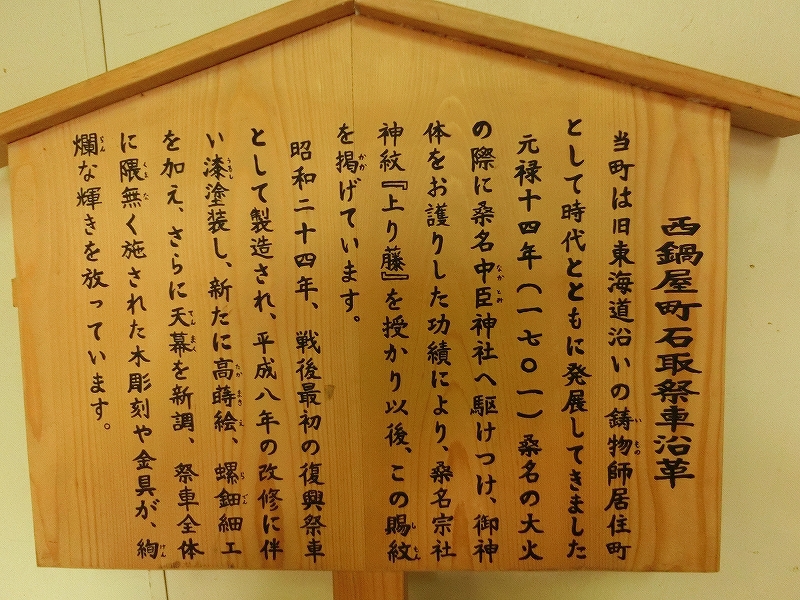 西鍋屋町石取祭車沿革
当町は旧東海道沿いの鋳物師居住町
として時代とともに発展してきました
元禄十四年(一七〇一)桑名の大火
の際に桑名中臣神社へ駆けつけ、御神
体をお護りした功績により、桑名宗社
神紋『上り藤』を授かり以後、この賜紋
を掲げています。
昭和二十四年、戦後最初の復興祭車
として製造され、平成八年の改修に伴
い漆塗装し、新たに高蒔絵、螺鈿細工
を加え、さらに天幕を新調、祭車全体
に隈無く施された木彫刻や金具が、絢
爛な輝きを放っています。